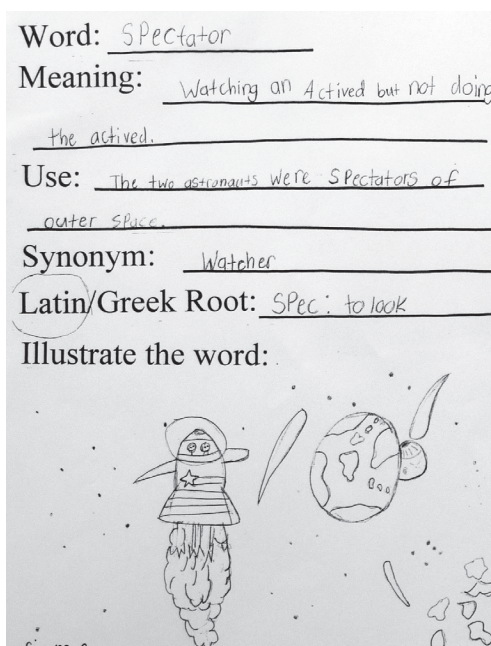 Word: Spectator
Meaning: Watching an Actived but not doing
the actived.
Use: The two astronauts were Spectators of
outer Space.
Synonym: Watcher
Latin/Greek Root: Spec: to look
Illustrate the word: